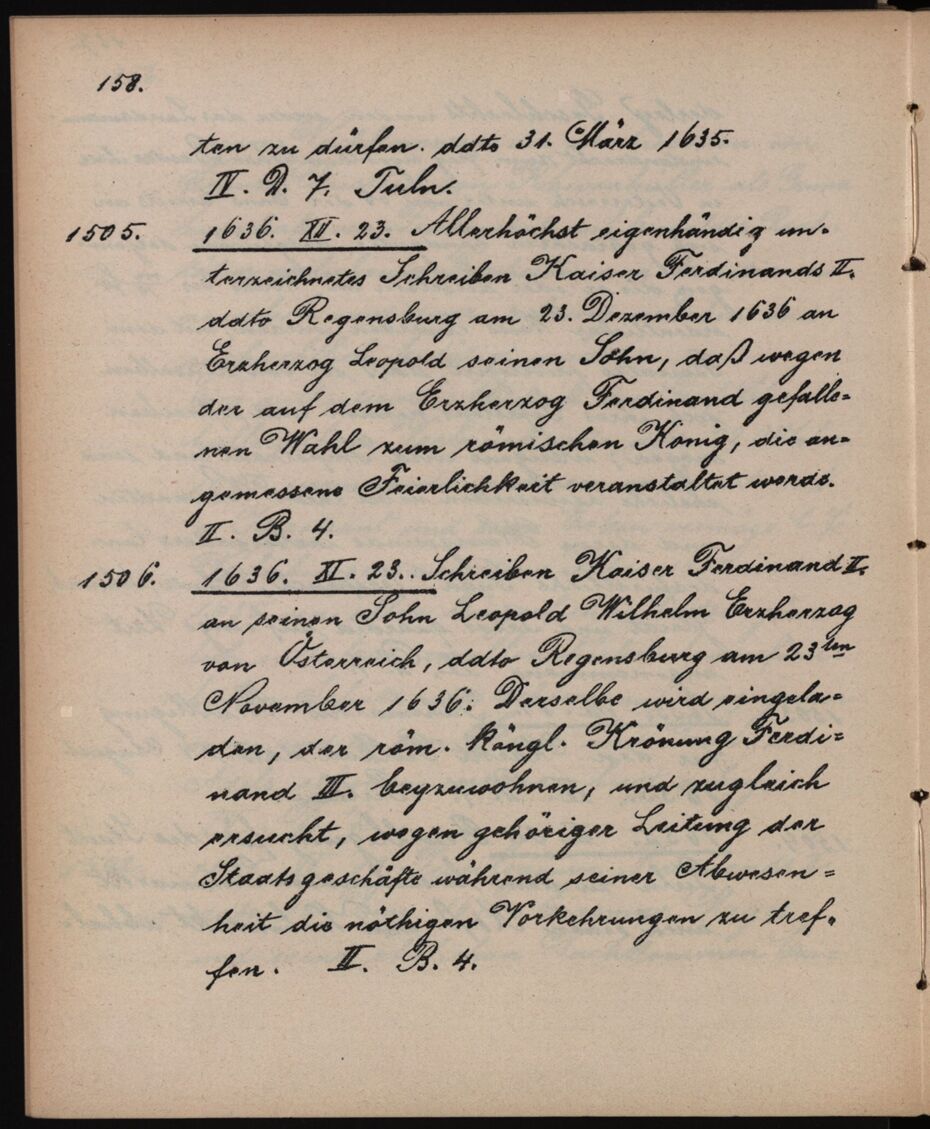 158.
ten zu dürfen. ddto 31. März 1635.
IV. D. 7. Tuln.
1505. 1636. XII. 23. Allerhöchst eigenhändig un-
terzeichnetes Schreiben Kaiser Ferdinands II.
ddto Regensburg am 23. Dezember 1636 an
Erzherzog Leopold seinen Sohn, daß wegen
der auf dem Erzherzog Ferdinand gefalle=
nen Wahl zum römischen König, die an=
gemessene Feierlichkeit veranstaltet werde.
II. B. 4.
1506. 1636. XI. 23. Schreiben Kaiser Ferdinand II.
an seinen Sohn Leopold Wilhelm Erzherzog
von Österreich, ddto Regensburg am 23ten
November 1636. Derselbe wird eingela=
den, der röm. köngl. Krönung Ferdi=
nand III. beyzuwohnen, und zugleich
ersucht, wegen gehöriger Leitung der
Staatsgeschäfte während seiner Abwesen=
heit die nöthigen Vorkehrungen zu tref-
fen. II. B. 4.